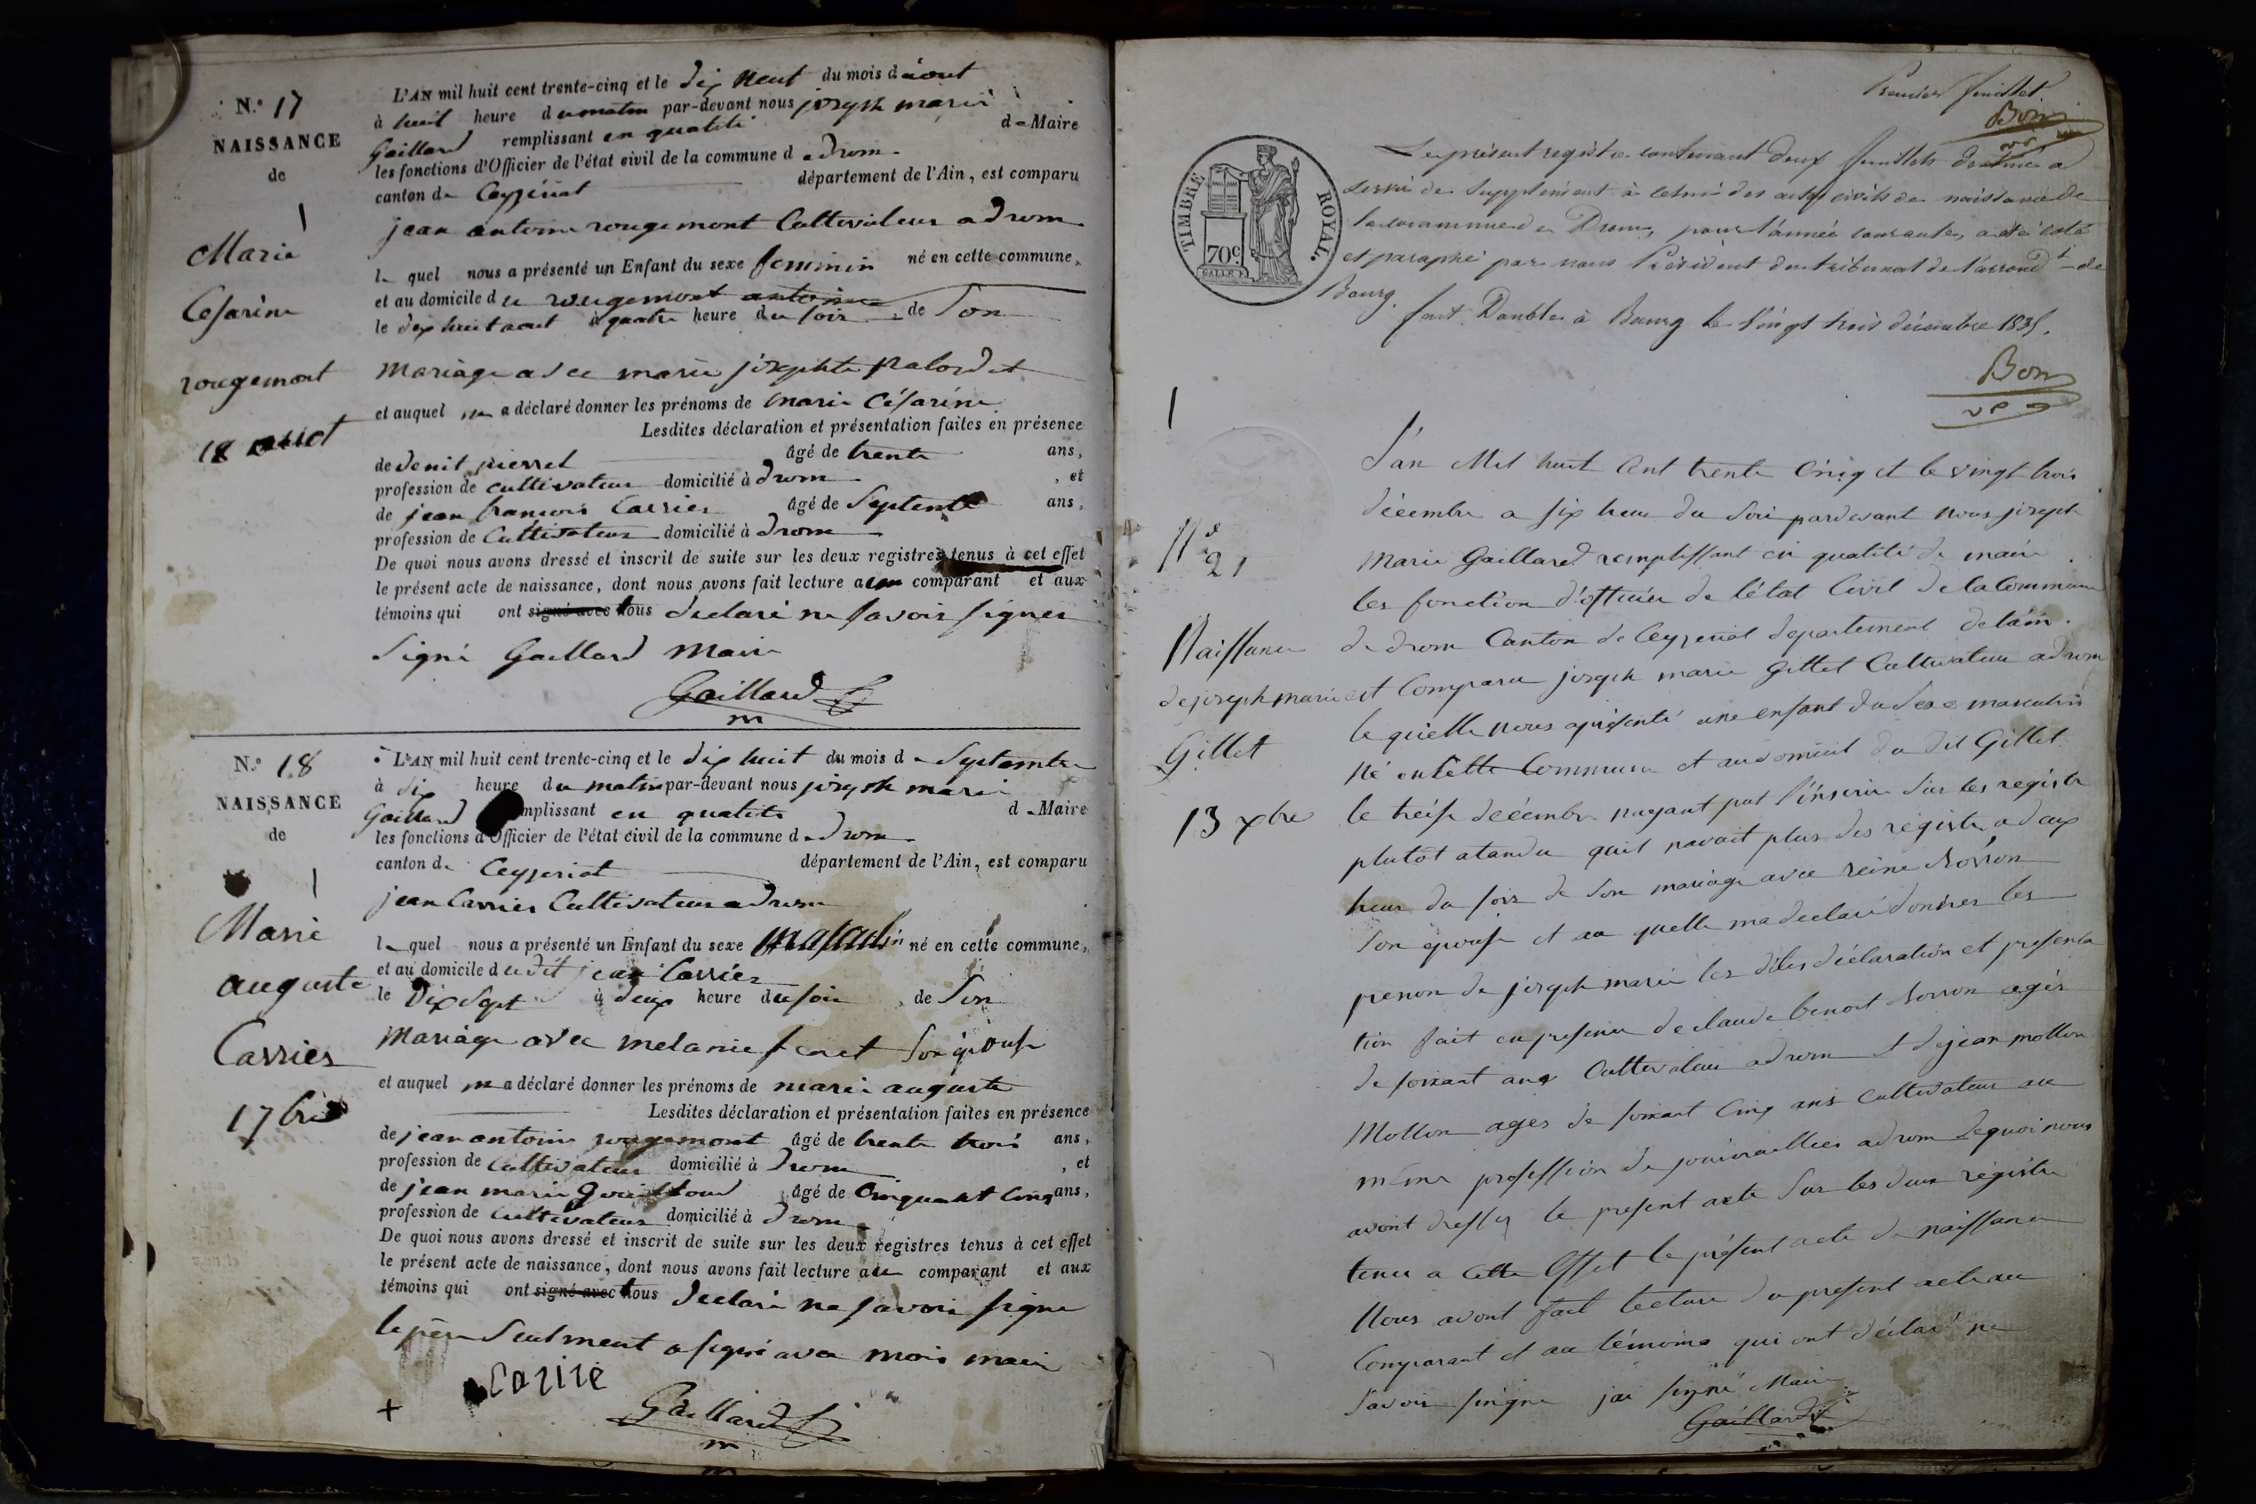 N.º 17
NAISSANCE
de
1
Marie
Cesarine
rougemont
18 aout
L'AN mil huit cent trente-cinq et le dix neuf du mois d août
à huit heure du matin par-devant nous joseph marie
Gaillard remplissant en qualité de Maire
les fonctions d'Officier de l'état civil de la commune de drom
canton de Ceyzériat département de l'Ain, est comparu
jean antoine rougemont Cultivateur a drom
le quel nous a présenté un Enfant du sexe feminin né en cette commune,
et au domicile du rougemont antoine
le dix huit aout à quatre heure du soir, de Son
mariage avec marie josephte
et auquel m a déclaré donner les prénoms de marie Césarine
Lesdites déclaration et présentation faites en présence
de denit pierrel âgé de trente ans,
profession de cultivateur domicilié à drom, et
de jean francois Carrier âgé de Septente ans,
profession de Cultivateur domicilié à drom
De quoi nous avons dressé et inscrit de suite sur les deux registres tenus à cet effet
le présent acte de naissance, dont nous avons fait lecture au comparant et aux
témoins qui ont signé avec nous declaré ne savoir signer
Signé Gaillard Maire
Gaillard
m
N.º 18
NAISSANCE
de
1
Marie
auguste
Carrier
17 bre
L'AN mil huit cent trente-cinq et le dix huit du mois de Septembre
à dix heure du matin par-devant nous joseph marie
Gaillard remplissant en qualité de Maire
les fonctions d'Officier de l'état civil de la commune de drom
canton de Ceyzeriat département de l'Ain, est comparu
jean Carrier Cultivateur a drom
le quel nous a présenté un Enfant du sexe masculin né en cette commune,
et au domicile du dit jean Carrier
le Dix Sept à deux heure du soir, de Son
Mariage avec melanie feret Son épouse
et auquel m a déclaré donner les prénoms de marie auguste
Lesdites déclaration et présentation faites en présence
de jean antoine rougemont âgé de trente trois ans,
profession de Cultivateur domicilié à Drom, et
de jean marie âgé de Cinquant Cinq ans,
profession de cultivateur domicilié à Drom
De quoi nous avons dressé et inscrit de suite sur les deux registres tenus à cet effet
le présent acte de naissance, dont nous avons fait lecture au comparant et aux
témoins qui ont signé avec nous declaré ne savoir signe
le père Seulment a signé avec mois maire
Carire
Gaillard
m
Premier feuillet
Bon
TIMBRE ROYAL.
70c.
Le présent registre contenant deux feuillets destiné a
servir de Supplément à celui des actes civils de naissance de
la commune de Drom, pour l'année courante, a été coté
et paraphé par nous Président du tribunal de l'arrondt de
Bourg.
fait Double à Bourg le Vingt trois décembre 1835.
Bon
1
N.º
21
Naissance
de joseph marie
Gillet
13 xbre
L'an Mil huit Cent trente Cinq et le vingt trois
décembre a six heur du Soir pardevant nous joseph
Marie Gaillard remplissant en qualité de maire
les fonction d'officier de l'état Civil de la Commune
de drom Canton de Ceyzeriat departement de l'ain.
est Comparu joseph marie gillet Cultivateur a drom
le quelle nous a présenté une enfant du Sexe masculin
Né en Cette Commune et au domicil du dit Gillet
le treise décembre nayant put l'inscrire Sur les registre
plutôt atandu quil navait plus des registre a deux
heur du soir de Son mariage avec reine
Son epouse et au quelle ma declaré donner les
prenon de joseph marie les dites déclaration et présenta
tion fait en presence de claude benoit agés
de soixant ans Cultivateur a drom et de jean mollon
Mollon ages de soixant Cinq ans Cultivateur au
même profession de a drom Dequoi nous
avont dresser le present acte Sur les deux registre
tenu a Cette Effet le présent acte de naissance
Nous avont fait lecture du present acte au
Comparant et au témoins qui ont déclaré ne
Savoir singne jai signé Maire
Gaillard